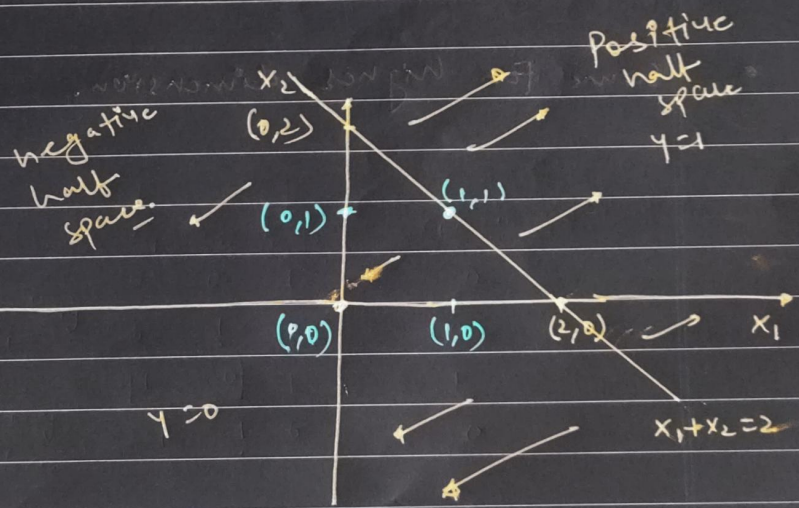 Positive
half
space
y=1
x₂
(0,2)
negative
half
space.
(0,1)
(1,1)
(0,0)
(1,0)
(2,0)
x₁
y=0
x₁+x₂=2